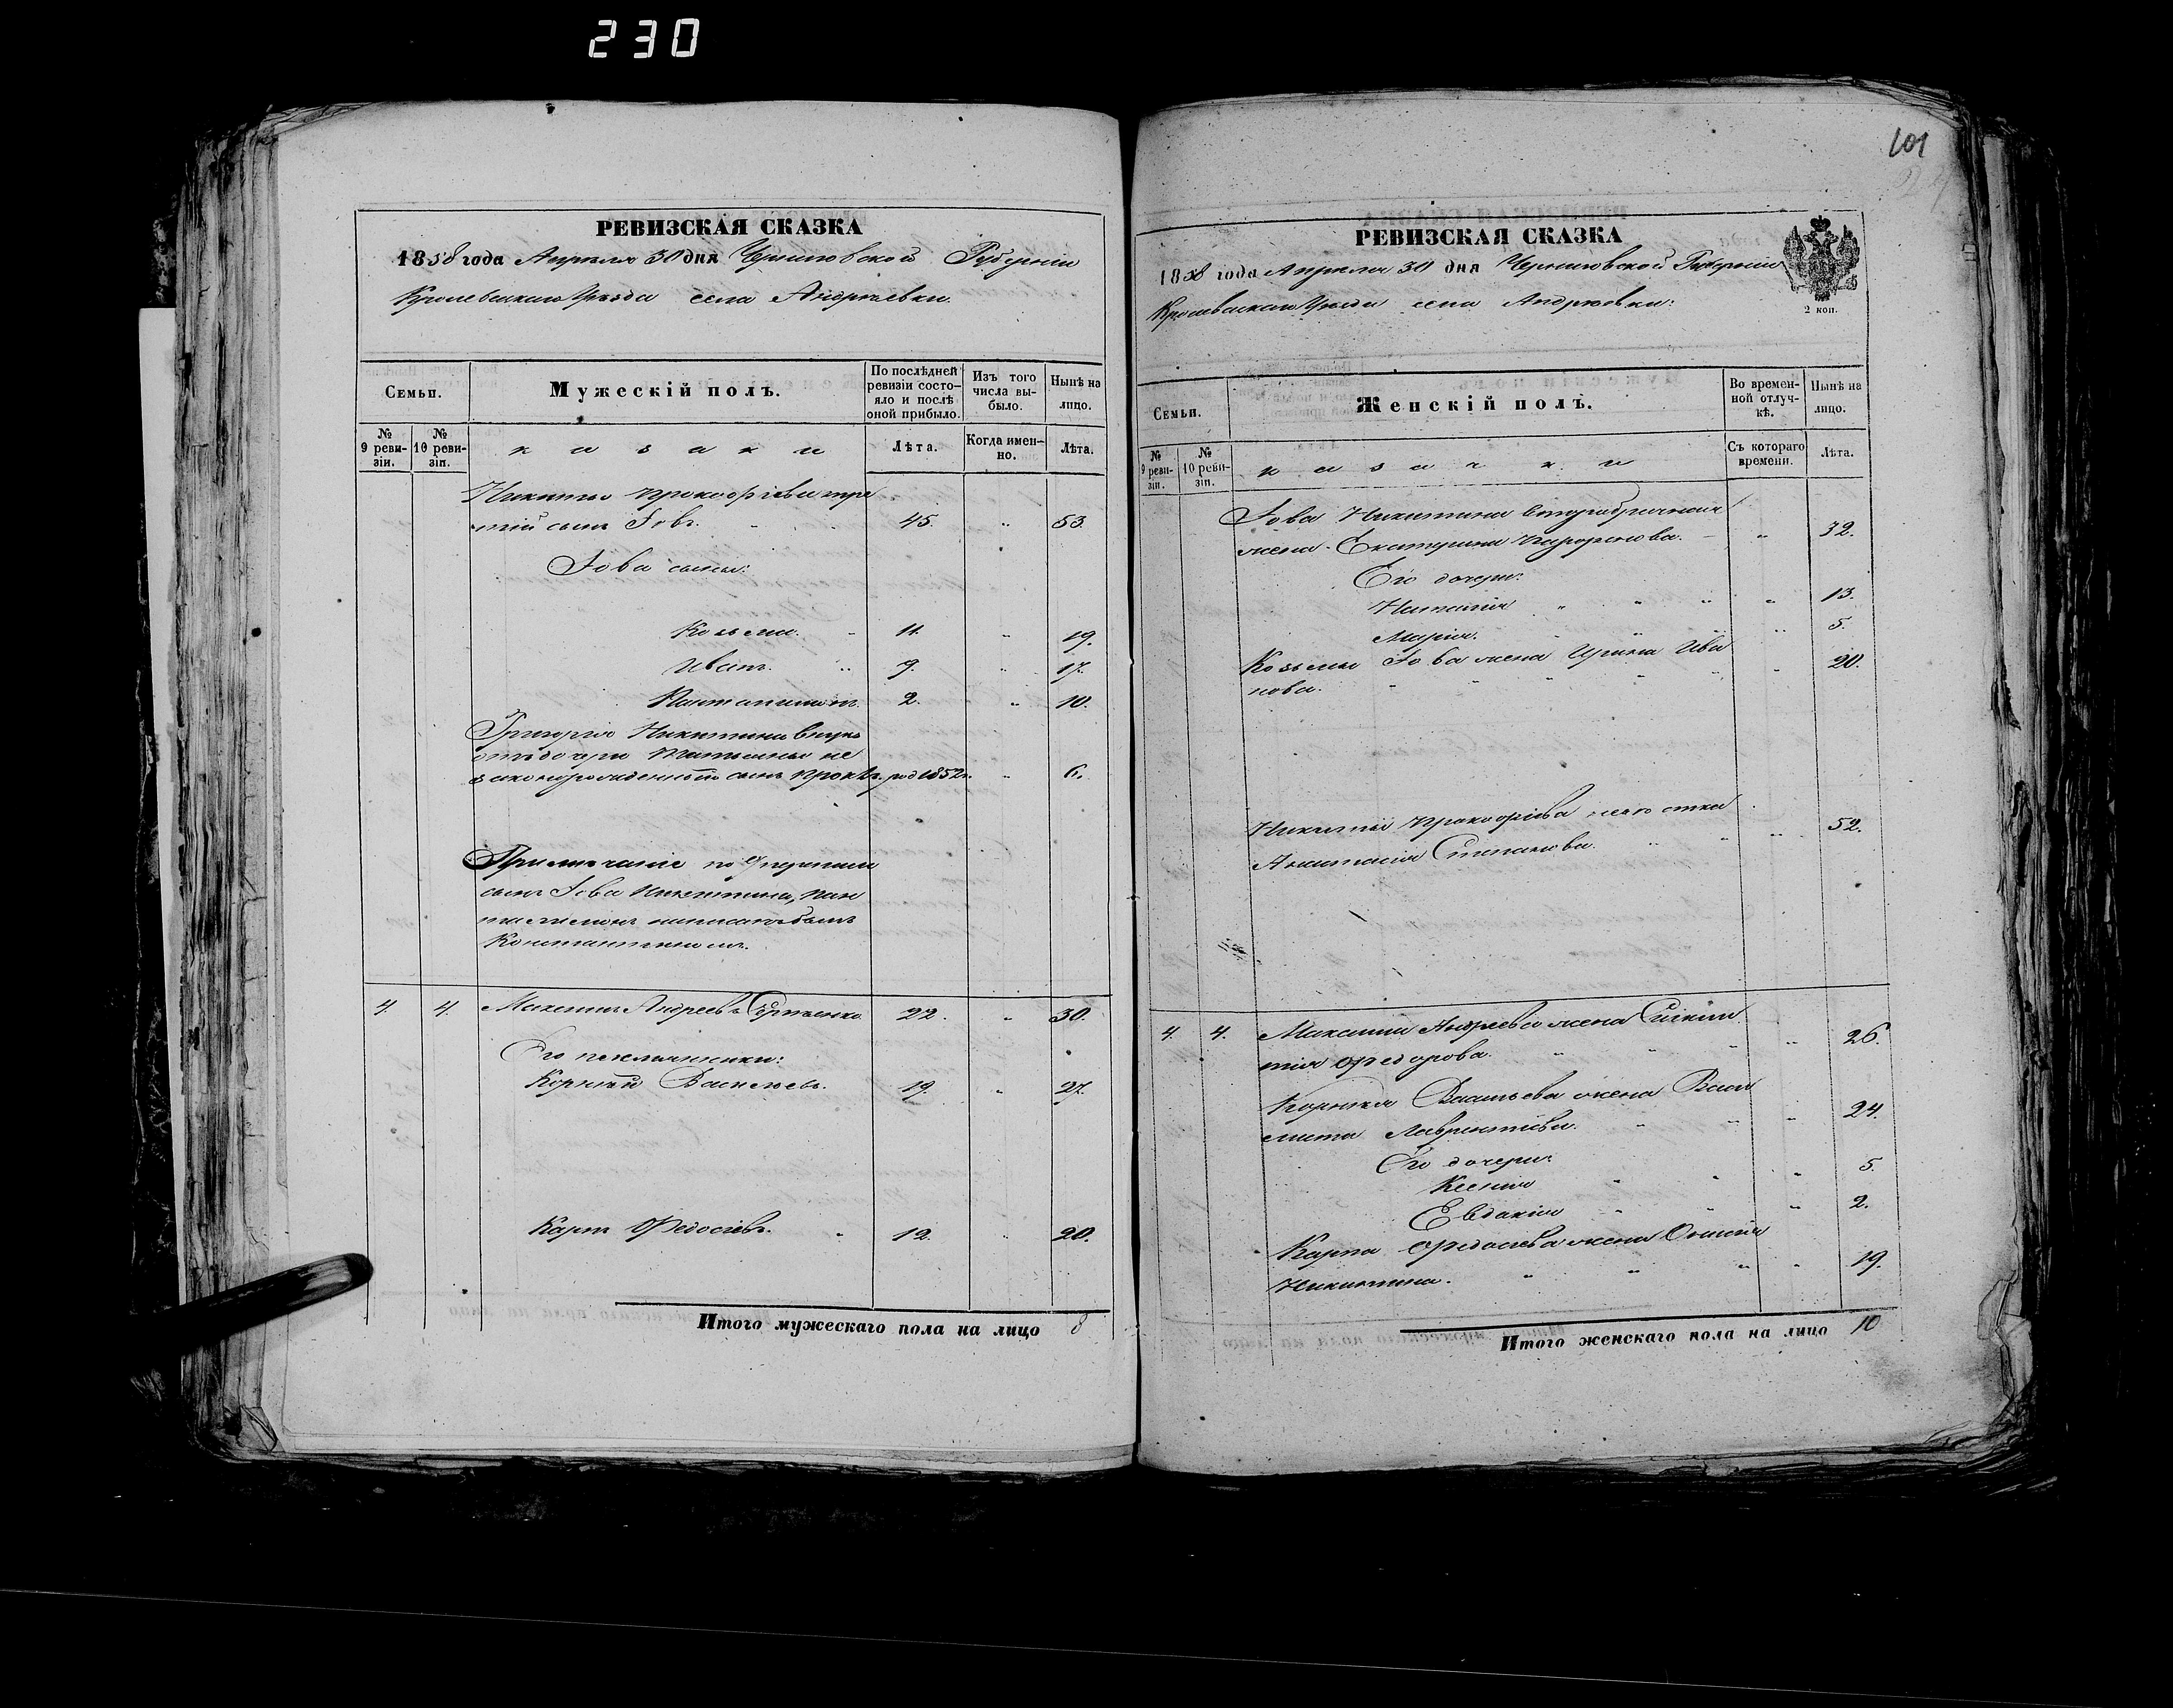 230
101
РЕВИЗСКАЯ СКАЗКА
1858 года Апреля 30 дня Черниговской Губерніи
Кролевецкаго Уѣзда села Андреевки.
Семьи.
Мужескій полъ.
По послѣдней ревизіи состояло и послѣ оной прибыло.
Изъ того числа выбыло.
Нынѣ на лицо.
№ 9 ревизіи.
№ 10 ревизіи.
казаки
Лѣта.
Когда именно.
Лѣта.
Никиты Прокофіева тре
тій сынъ Іовъ. 45. " 53.
Іова сыны:
Козьма. 11. " 19.
Иванъ. 9. " 17.
Пантелимонъ. 2. " 10.
Григорія Никитина внукъ
отъ дочери Татьяны не
законорожденный сынъ Проклъ. род 1852 г. " 6.
Примечаніе по 9 переписи
сынъ Іова Никитина, Пан
телимонъ написанъ былъ
Константиномъ.
4. 4. Максимъ Андреевъ 22. " 30.
Его племянники:
Корнѣй Васильевъ. 19. " 27.
Карпъ Федосіевъ. 12. " 20.
Итого мужескаго пола на лицо 8
РЕВИЗСКАЯ СКАЗКА
1858 года Апреля 30 дня Черниговской Губерніи
Кролевецкаго Уѣзда села Андреевки:
2 коп.
Семьи.
Женскій полъ.
Во временной отлучкѣ.
Нынѣ на лицо.
№ 9 ревизіи.
№ 10 ревизіи.
казачки
Съ котораго времени.
Лѣта.
Іова Никитина второбрачная
жена Екатерина Парфенова. " 32.
Его дочери:
Наталія " 13.
Марія. " 5.
Козьмы Іова жена Ирина Ива
нова. " 20.
Никиты Прокофіева невѣстка
Анастасія Степанова. " 52.
4. 4. Максима Андреева жена
Федорова. " 26.
Корнѣя Васильева жена Васи
листа Лаврентіева. " 24.
Его дочери:
Ксенія " 5.
Евдокія " 2.
Карпа Федосіева жена
Никитина. " 19.
Итого женскаго пола на лицо 10